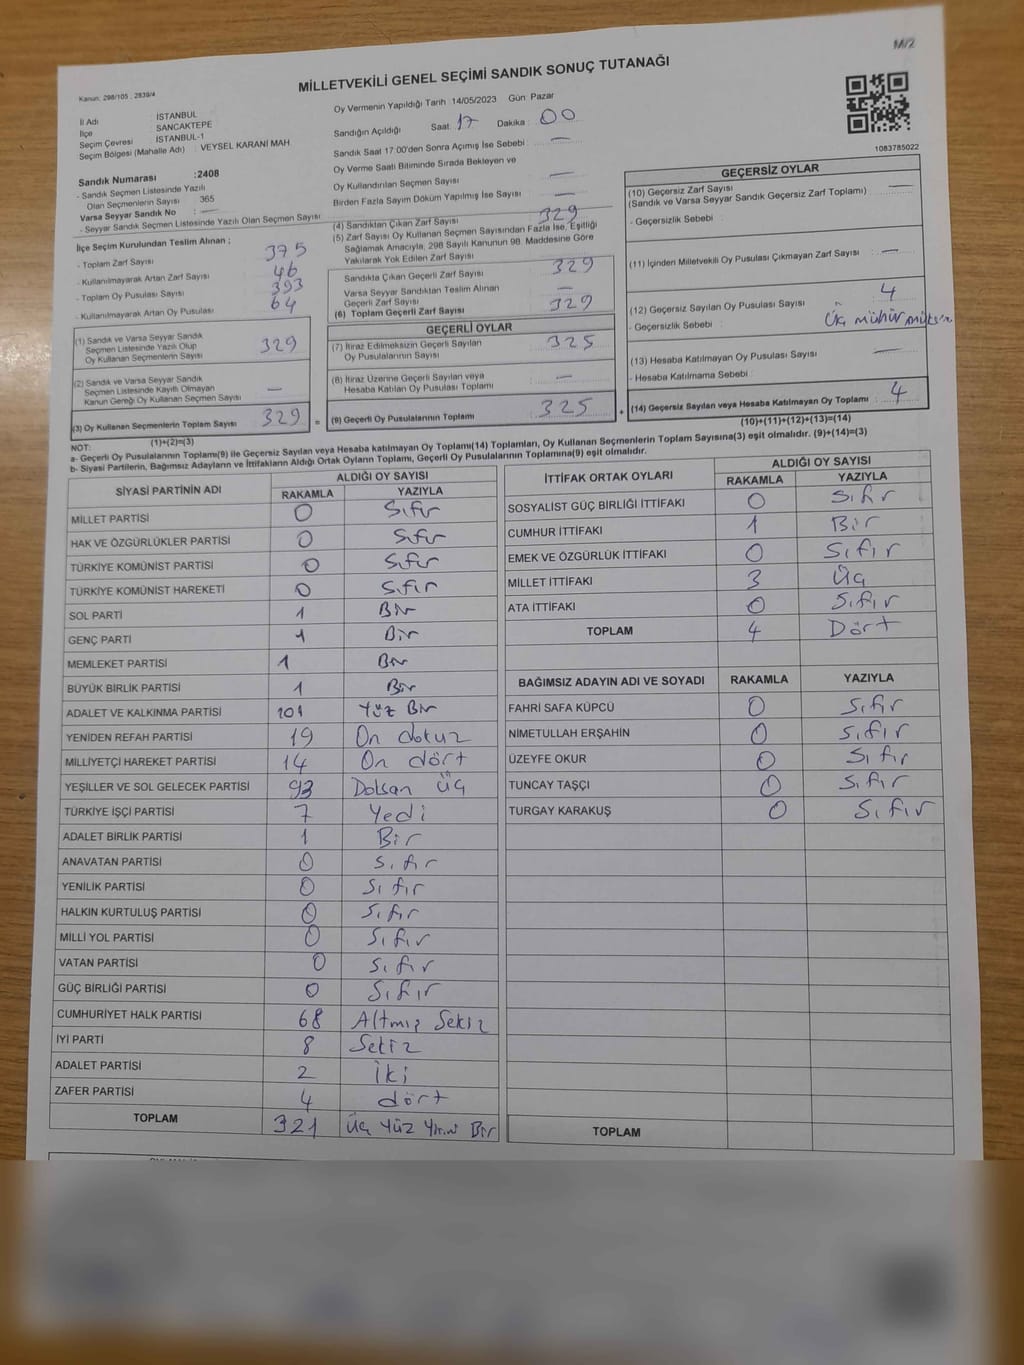 M/2
Kanun: 298/105 , 2839/4
MİLLETVEKİLİ GENEL SEÇİMİ SANDIK SONUÇ TUTANAĞI
İl Adı : İSTANBUL
İlçe : SANCAKTEPE
Seçim Çevresi : İSTANBUL-1
Seçim Bölgesi (Mahalle Adı) : VEYSEL KARANİ MAH.
Sandık Numarası :2408
- Sandık Seçmen Listesinde Yazılı
Olan Seçmenlerin Sayısı 365
Varsa Seyyar Sandık No : —
- Seyyar Sandık Seçmen Listesinde Yazılı Olan Seçmen Sayısı
Oy Vermenin Yapıldığı Tarih :14/05/2023 Gün: Pazar
Sandığın Açıldığı Saat: 17 Dakika : 00
Sandık Saat 17:00'den Sonra Açımış İse Sebebi : —
Oy Verme Saati Bitiminde Sırada Bekleyen ve
Oy Kullandırılan Seçmen Sayısı : —
Birden Fazla Sayım Döküm Yapılmış İse Sayısı : —
1083785022
İlçe Seçim Kurulundan Teslim Alınan ;
- Toplam Zarf Sayısı : 375
- Kullanılmayarak Artan Zarf Sayısı : 46
- Toplam Oy Pusulası Sayısı : 393
- Kullanılmayarak Artan Oy Pusulası : 64
(1) Sandık ve Varsa Seyyar Sandık
Seçmen Listesinde Yazılı Olup
Oy Kullanan Seçmenlerin Sayısı 329
(2) Sandık ve Varsa Seyyar Sandık
Seçmen Listesinde Kayıtlı Olmayan
Kanun Gereği Oy Kullanan Seçmen Sayısı : —
(3) Oy Kullanan Seçmenlerin Toplam Sayısı 329 =
(1)+(2)=(3)
(4) Sandıktan Çıkan Zarf Sayısı 329
(5) Zarf Sayısı Oy Kullanan Seçmen Sayısından Fazla İse, Eşitliği
Sağlamak Amacıyla, 298 Sayılı Kanunun 98. Maddesine Göre
Yakılarak Yok Edilen Zarf Sayısı :
Sandıkta Çıkan Geçerli Zarf Sayısı 329
Varsa Seyyar Sandıktan Teslim Alınan
Geçerli Zarf Sayısı : —
(6) Toplam Geçerli Zarf Sayısı : 329
GEÇERLİ OYLAR
(7) İtiraz Edilmeksizin Geçerli Sayılan
Oy Pusulalarının Sayısı : 325
(8) İtiraz Üzerine Geçerli Sayılan veya
Hesaba Katılan Oy Pusulası Toplamı —
(9) Geçerli Oy Pusulalarının Toplamı 325 +
GEÇERSİZ OYLAR
(10) Geçersiz Zarf Sayısı : —
(Sandık ve Varsa Seyyar Sandık Geçersiz Zarf Toplamı)
- Geçersizlik Sebebi :
(11) İçinden Milletvekili Oy Pusulası Çıkmayan Zarf Sayısı : —
(12) Geçersiz Sayılan Oy Pusulası Sayısı : 4
- Geçersizlik Sebebi : Üç mühür
(13) Hesaba Katılmayan Oy Pusulası Sayısı : —
- Hesaba Katılmama Sebebi :
(14) Geçersiz Sayılan veya Hesaba Katılmayan Oy Toplamı 4
(10)+(11)+(12)+(13)=(14)
NOT:
a- Geçerli Oy Pusulalarının Toplamı(9) ile Geçersiz Sayılan veya Hesaba katılmayan Oy Toplamı(14) Toplamları, Oy Kullanan Seçmenlerin Toplam Sayısına(3) eşit olmalıdır. (9)+(14)=(3)
b- Siyasi Partilerin, Bağımsız Adayların ve İttifakların Aldığı Ortak Oyların Toplamı, Geçerli Oy Pusulalarının Toplamına(9) eşit olmalıdır.
SİYASİ PARTİNİN ADI ALDIĞI OY SAYISI
RAKAMLA YAZIYLA
MİLLET PARTİSİ 0 Sıfır
HAK VE ÖZGÜRLÜKLER PARTİSİ 0 Sıfır
TÜRKİYE KOMÜNİST PARTİSİ 0 Sıfır
TÜRKİYE KOMÜNİST HAREKETİ 0 Sıfır
SOL PARTİ 1 Bir
GENÇ PARTİ 1 Bir
MEMLEKET PARTİSİ 1 Bir
BÜYÜK BİRLİK PARTİSİ 1 Bir
ADALET VE KALKINMA PARTİSİ 101 Yüz Bir
YENİDEN REFAH PARTİSİ 19 On dokuz
MİLLİYETÇİ HAREKET PARTİSİ 14 On dört
YEŞİLLER VE SOL GELECEK PARTİSİ 93 Doksan üç
TÜRKİYE İŞÇİ PARTİSİ 7 Yedi
ADALET BİRLİK PARTİSİ 1 Bir
ANAVATAN PARTİSİ 0 Sıfır
YENİLİK PARTİSİ 0 Sıfır
HALKIN KURTULUŞ PARTİSİ 0 Sıfır
MİLLİ YOL PARTİSİ 0 Sıfır
VATAN PARTİSİ 0 Sıfır
GÜÇ BİRLİĞİ PARTİSİ 0 Sıfır
CUMHURİYET HALK PARTİSİ 68 Altmış Sekiz
İYİ PARTİ 8 Sekiz
ADALET PARTİSİ 2 İki
ZAFER PARTİSİ 4 dört
TOPLAM 321 Üç Yüz Yirmi Bir
İTTİFAK ORTAK OYLARI ALDIĞI OY SAYISI
RAKAMLA YAZIYLA
SOSYALİST GÜÇ BİRLİĞİ İTTİFAKI 0 Sıfır
CUMHUR İTTİFAKI 1 Bir
EMEK VE ÖZGÜRLÜK İTTİFAKI 0 Sıfır
MİLLET İTTİFAKI 3 Üç
ATA İTTİFAKI 0 Sıfır
TOPLAM 4 Dört
BAĞIMSIZ ADAYIN ADI VE SOYADI RAKAMLA YAZIYLA
FAHRİ SAFA KÜPCÜ 0 Sıfır
NİMETULLAH ERŞAHİN 0 Sıfır
ÜZEYFE OKUR 0 Sıfır
TUNCAY TAŞÇI 0 Sıfır
TURGAY KARAKUŞ 0 Sıfır
TOPLAM